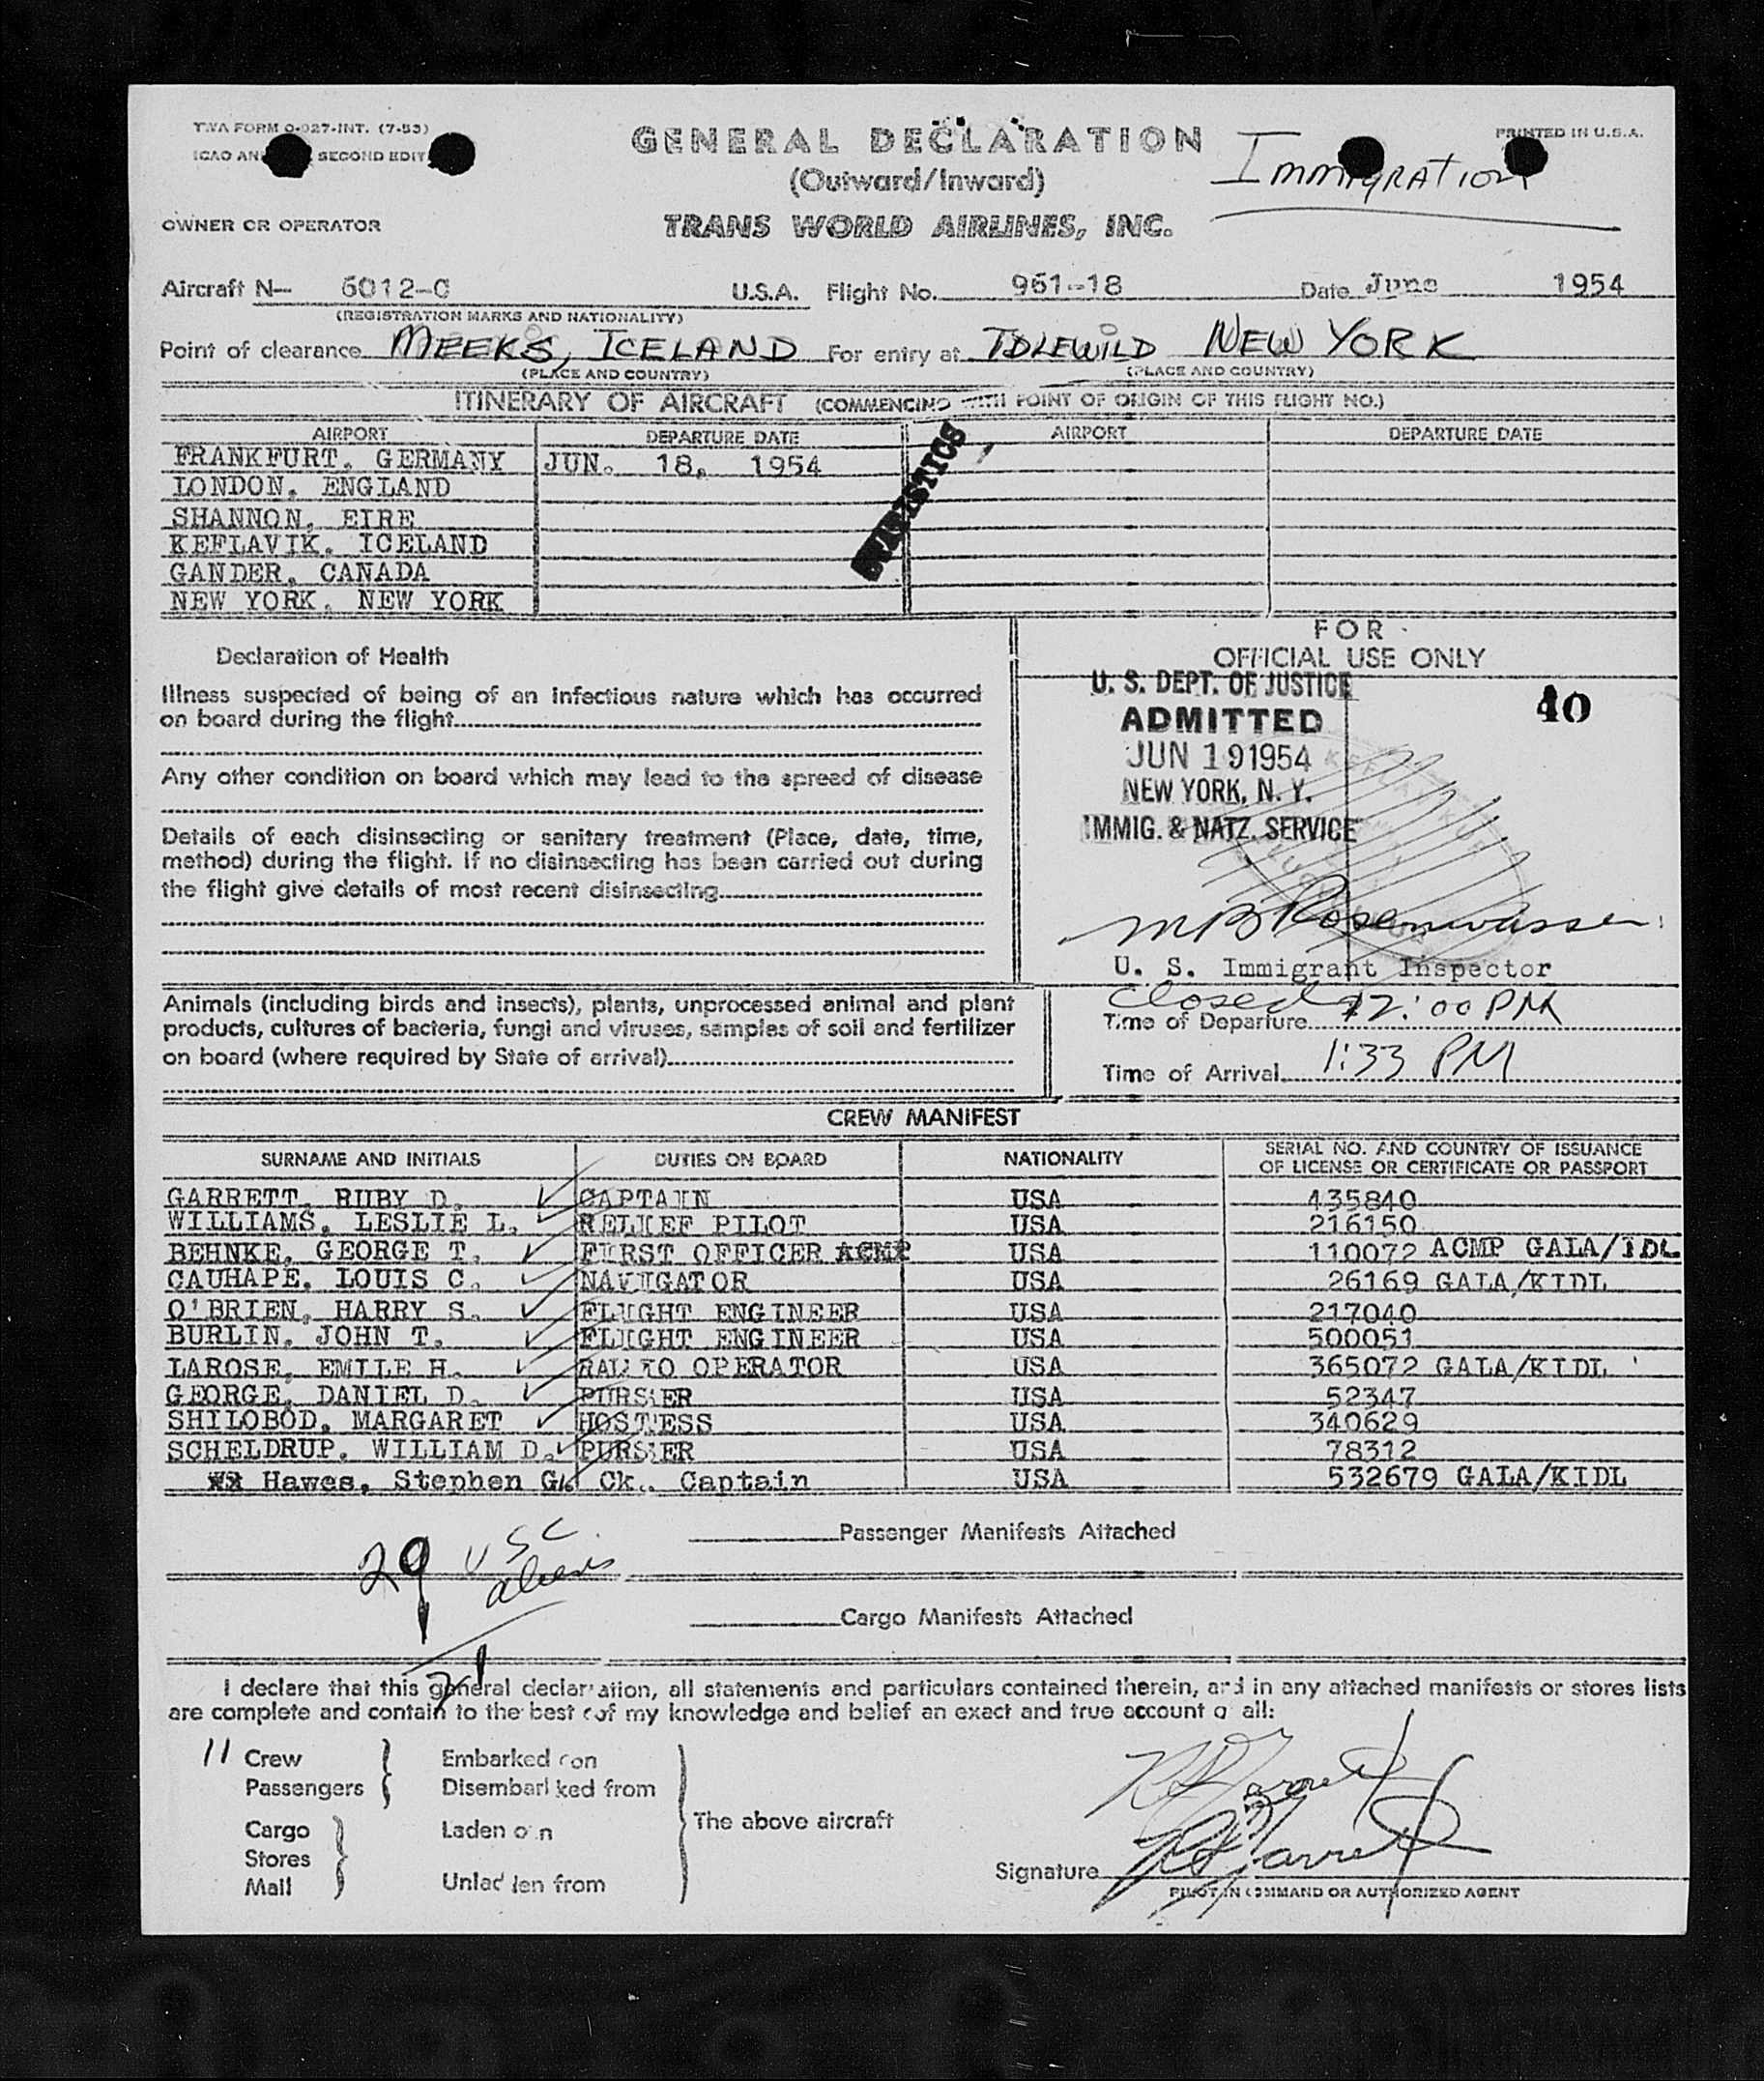 TWA FORM O-027-INT. (7-53)
PRINTED IN U.S.A.
ICAO SECOND
GENERAL DECLARATION
(Outward/Inward)
IMMIGRATION
OWNER OR OPERATOR
TRANS WORLD AIRLINES, INC.
Aircraft N— 6012-C U.S.A. Flight No. 961-18 Date June 1954
(REGISTRATION MARKS AND NATIONALITY)
Point of clearance MEEKS, ICELAND For entry at IDLEWILD NEW YORK
(PLACE AND COUNTRY) (PLACE AND COUNTRY)
ITINERARY OF AIRCRAFT (COMMENCING WITH POINT OF ORIGIN OF THIS FLIGHT NO.)
AIRPORT DEPARTURE DATE AIRPORT DEPARTURE DATE
FRANKFURT, GERMANY JUN. 18, 1954
LONDON, ENGLAND
SHANNON, EIRE
KEFLAVIK, ICELAND
GANDER, CANADA
NEW YORK, NEW YORK
STATISTICS
Declaration of Health
Illness suspected of being of an infectious nature which has occurred
on board during the flight
Any other condition on board which may lead to the spread of disease
Details of each disinsecting or sanitary treatment (Place, date, time,
method) during the flight. If no disinsecting has been carried out during
the flight give details of most recent disinsecting
FOR
OFFICIAL USE ONLY
U. S. DEPT. OF JUSTICE
ADMITTED
JUN 19 1954
NEW YORK, N. Y.
IMMIG. & NATZ. SERVICE
40
M B Rosenwasser
U. S. Immigrant Inspector
Animals (including birds and insects), plants, unprocessed animal and plant
products, cultures of bacteria, fungi and viruses, samples of soil and fertilizer
on board (where required by State of arrival)
Closed 12:00 PM
Time of Departure
Time of Arrival 1:33 PM
CREW MANIFEST
SURNAME AND INITIALS DUTIES ON BOARD NATIONALITY SERIAL NO. AND COUNTRY OF ISSUANCE
OF LICENSE OR CERTIFICATE OR PASSPORT
GARRETT, RUBY D. CAPTAIN USA 435840
WILLIAMS, LESLIE L. RELIEF PILOT USA 216150
BEHNKE, GEORGE T. FIRST OFFICER ACMP USA 110072 ACMP GALA/IDL
CAUHAPE, LOUIS C. NAVIGATOR USA 26169 GALA/KIDL
O'BRIEN, HARRY S. FLIGHT ENGINEER USA 217040
BURLIN, JOHN T. FLIGHT ENGINEER USA 500051
LAROSE, EMILE H. RADIO OPERATOR USA 365072 GALA/KIDL
GEORGE, DANIEL D. PURSER USA 52347
SHILOBOD, MARGARET HOSTESS USA 340629
SCHELDRUP, WILLIAM D. PURSER USA 78312
Hawes, Stephen G. Ck. Captain USA 532679 GALA/KIDL
29 USC
aliens
Passenger Manifests Attached
Cargo Manifests Attached
I declare that this general declaration, all statements and particulars contained therein, and in any attached manifests or stores lists
are complete and contain to the best of my knowledge and belief an exact and true account of all:
11 Crew Embarked on
Passengers Disembarked from
The above aircraft
Cargo Laden on
Stores
Mail Unladen from
R D Garrett
R D Garrett
Signature
PILOT IN COMMAND OR AUTHORIZED AGENT